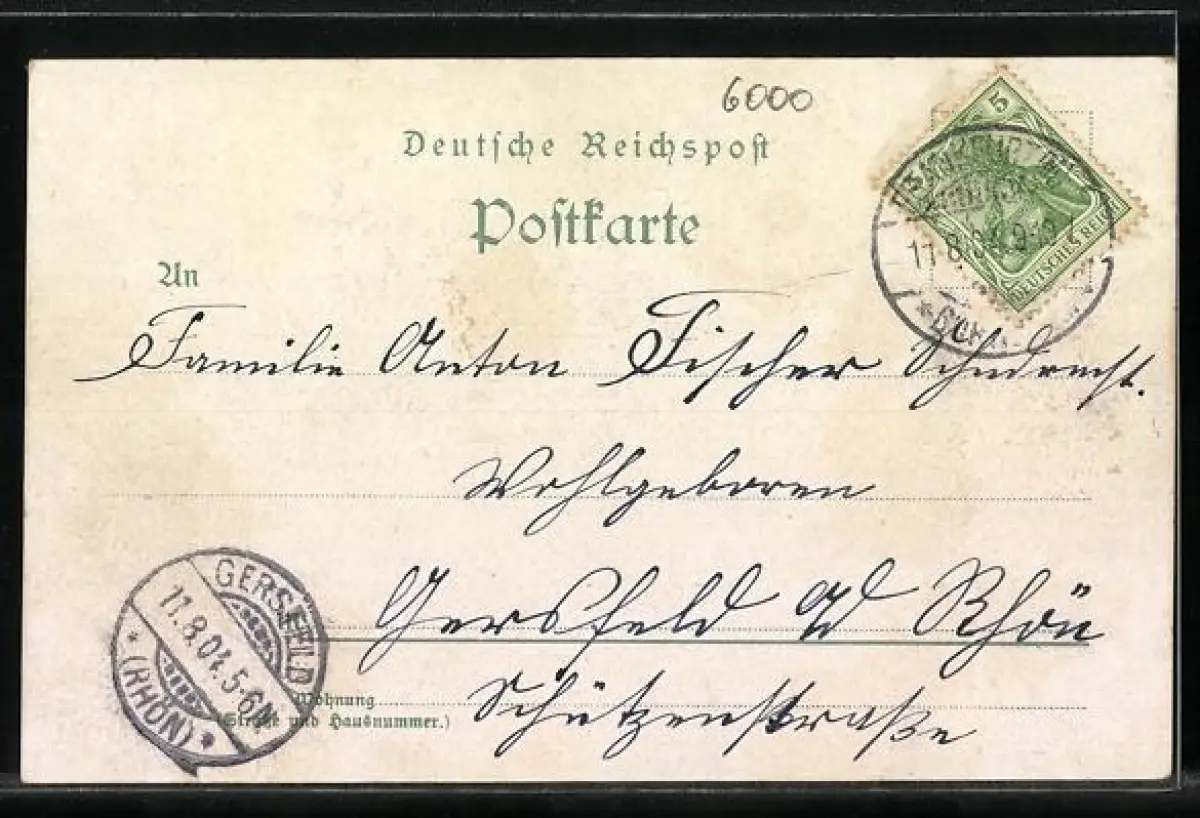 6000
Deutsche Reichspost
Postkarte
An
5
DEUTSCHES REICH
11.8.04. 9-10
Familie Anton Fischer
Wohlgeboren
Gersfeld a/d Rhön
GERSFELD
11.8.04. 5-6N.
* (RHÖN) *
Wohnung
(Straße und Hausnummer.)
Schützenstraße